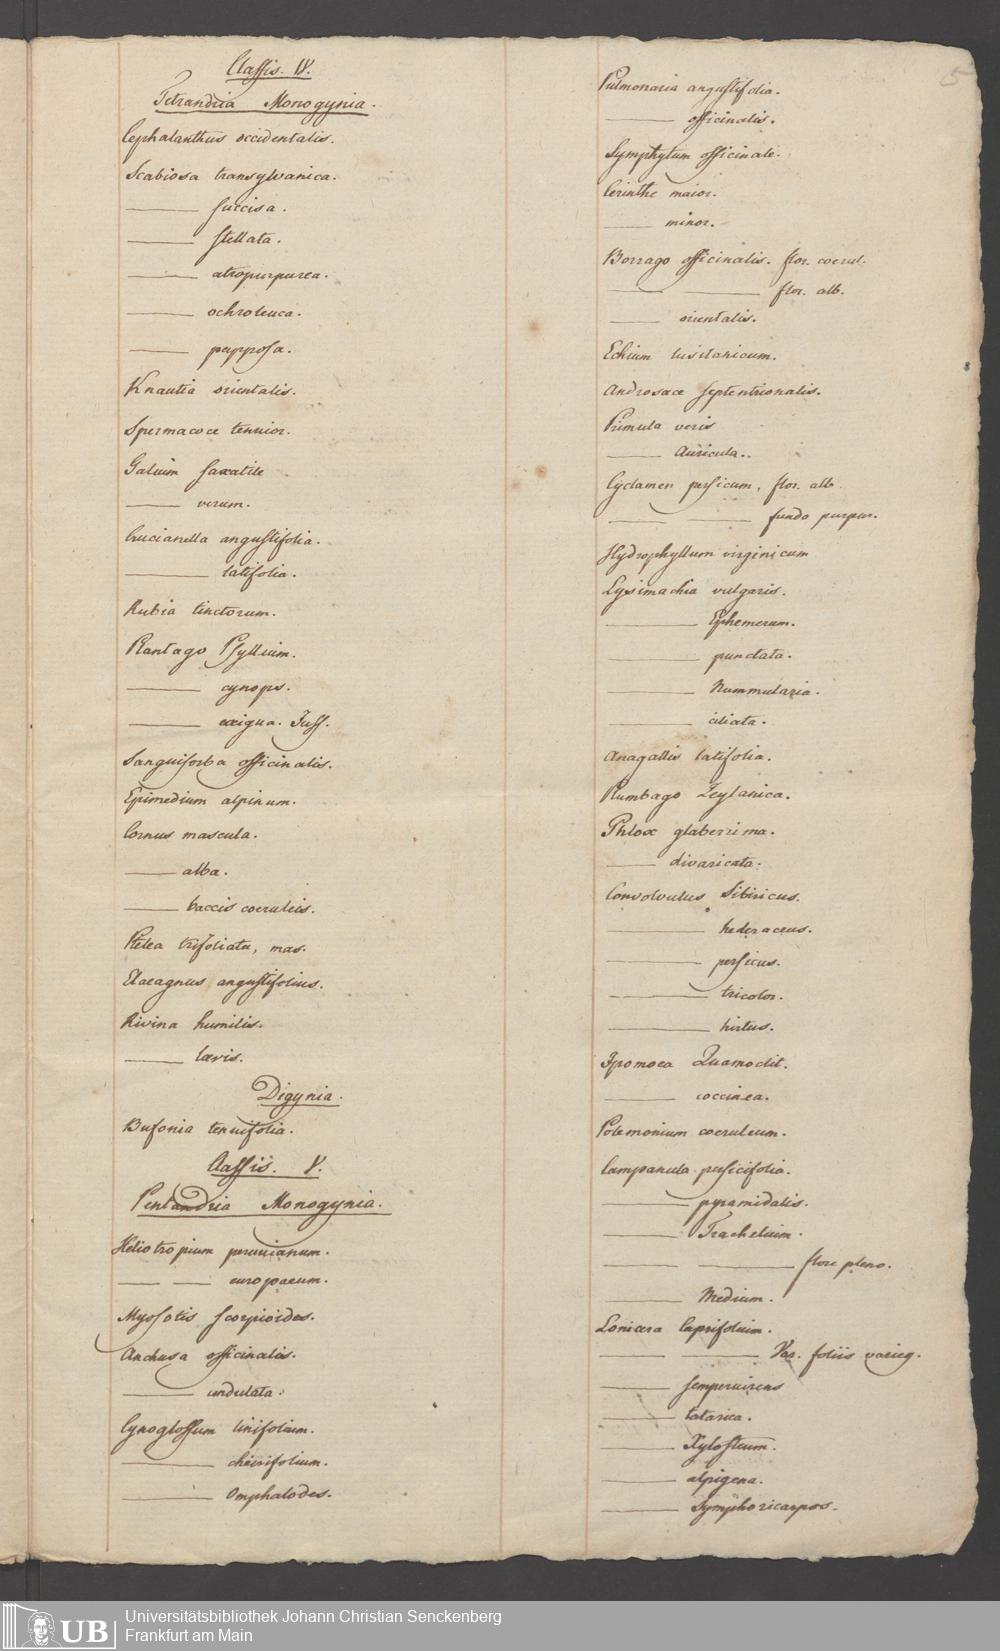 Classis. IV.
Tetrandria Monogynia.
Cephalanthus occidentalis.
Scabiosa transylvanica.
——— succisa.
——— stellata.
——— atropurpurea.
——— ochroleuca.
——— papposa.
Knautia orientalis.
Spermacoce tenuior.
Galium saxatile
——— verum.
Crucianella angustifolia.
——— latifolia.
Rubia tinctorum.
Plantago Psyllium.
——— cynops.
——— exigua. Juss.
Sanguisorba officinalis.
Epimedium alpinum.
Cornus mascula.
——— alba.
——— baccis coeruleis.
Ptelea trifoliata, mas.
Elaeagnus angustifolius.
Rivina humilis.
——— laevis.
Digynia.
Bufonia tenuifolia.
Classis. V.
Pentandria Monogynia.
Heliotropium peruvianum.
—— —— europaeum.
Myosotis scorpioides.
Anchusa officinalis.
——— undulata.
Cynoglossum linifolium.
——— cheirifolium.
——— Omphalodes.
5
Pulmonaria angustifolia.
——— officinalis.
Symphytum officinale.
Cerinthe maior.
——— minor.
Borrago officinalis. flor. coerul.
——— ——— flor. alb.
——— orientalis.
Echium lusitanicum.
Androsace septentrionalis.
Primula veris
——— Auricula..
Cyclamen persicum, flor. alb.
——— ——— fundo purpur.
Hydrophyllum virginicum
Lysimachia vulgaris.
——— Ephemerum.
——— punctata.
——— Nummularia.
——— ciliata.
Anagallis latifolia.
Plumbago Zeylanica.
Phlox glaberrima.
——— divaricata.
Convolvulus Sibiricus.
——— hederaceus.
——— persicus.
——— tricolor.
——— hirtus.
Ipomoea Quamoclit.
——— coccinea.
Polemonium coeruleum.
Campanula persicifolia.
——— pyramidalis.
——— Trachelium.
——— ——— flore pleno.
——— Medium.
Lonicera Caprifolium.
——— ——— Var. foliis varieg.
——— sempervirens
——— tatarica.
——— Xylosteum.
——— alpigena.
——— Symphoricarpos.
UB
Universitätsbibliothek Johann Christian Senckenberg
Frankfurt am Main